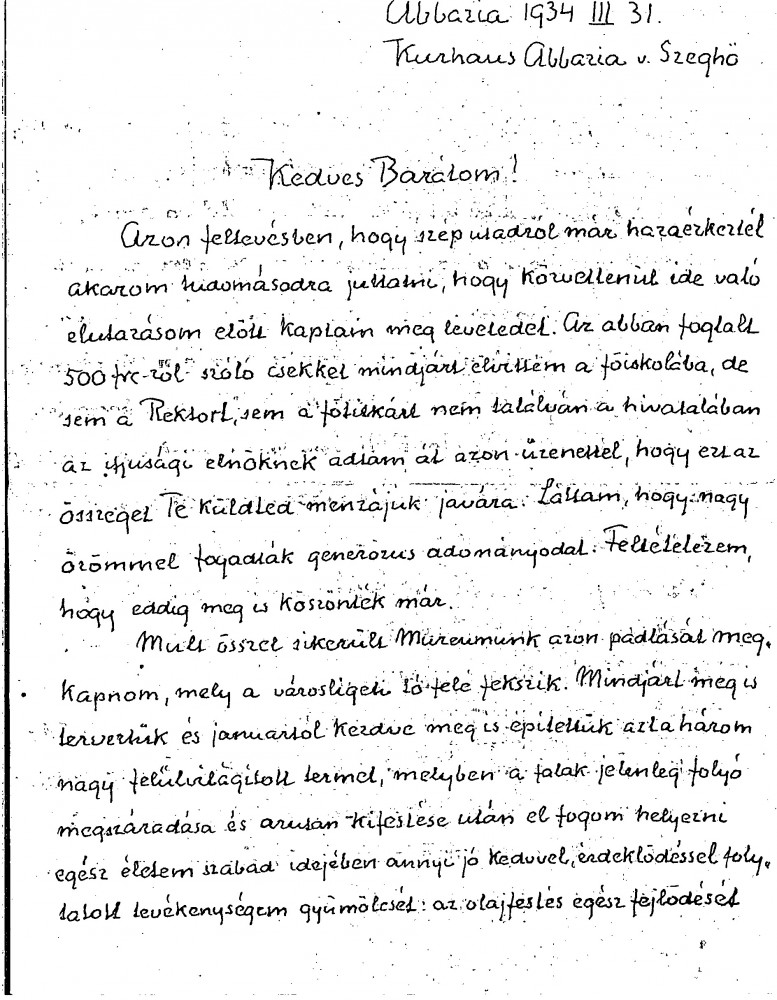 Abbazia 1934 III 31.
Kurhaus Abbazia v. Szeghö
Kedves Barátom!
Azon feltevésben, hogy szép utadról már hazaérkeztél
akarom tudomásodra juttatni, hogy közvetlenül ide való
elutazásom előtt kaptam meg leveledet. Az abban foglalt
500 frc-ról szóló csekket mindjárt elvittem a főiskolába, de
sem a Rektort, sem a főtitkárt nem találván a hivatalában
az ifjusági elnöknek adtam át azon üzenettel, hogy ezt az
összeget Te küldted menzájuk javára. Láttam, hogy nagy
örömmel fogadták generozus adományodat. Feltételezem,
hogy eddig meg is köszönték már.
Mult ősszel sikerült Muzeumunk azon padlását meg-
kapnom, mely a városligeti tó felé fekszik. Mindjárt meg is
terveztük és januártól kezdve meg is építettük azt a három
nagy felülvilágitott termet, melyben a falak jelenleg folyó
megszáradása és azután kifestése után el fogom helyezni
egész életem szabad idejében annyi jó kedvvel, érdeklődéssel foly-
tatott tevékenységem gyümölcsét: az olajfestés egész fejlődését